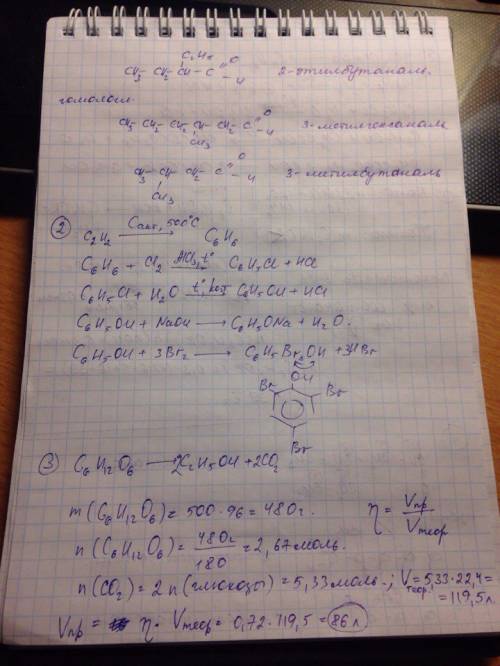 C₂H₅ O
CH₃ CH₂ CH - C - H 2-этилбутаналь.
гомологи.
CH₃ CH₂ CH₂ CH CH₂ C O H 3-метилгексаналь
CH₃
CH₃ CH CH₂ C O H 3-метилбутаналь
CH₃
② C₂H₂ ⟶ Cакт, 500°C C₆H₆
C₆H₆ + Cl₂ ⟶ AlCl₃, t° C₆H₅Cl + HCl
C₆H₅Cl + H₂O ⟶ t°, kat C₆H₅OH + HCl
C₆H₅OH + NaOH ⟶ C₆H₅ONa + H₂O.
C₆H₅OH + 3Br₂ ⟶ OH + 3HBr
OH
Br Br
Br
③ C₆H₁₂O₆ ⟶ 2C₂H₅OH + 2CO₂
m(C₆H₁₂O₆) = 500·96 = 480г. η = Vпр/Vтеор
n(C₆H₁₂O₆) = 480г/180 = 2,67моль.
n(CO₂) = 2n(глюкозы) = 5,33моль.; Vтеор. = 5,33·22,4 =
= 119,5л
Vпр = η · Vтеор = 0,72·119,5 = 86л